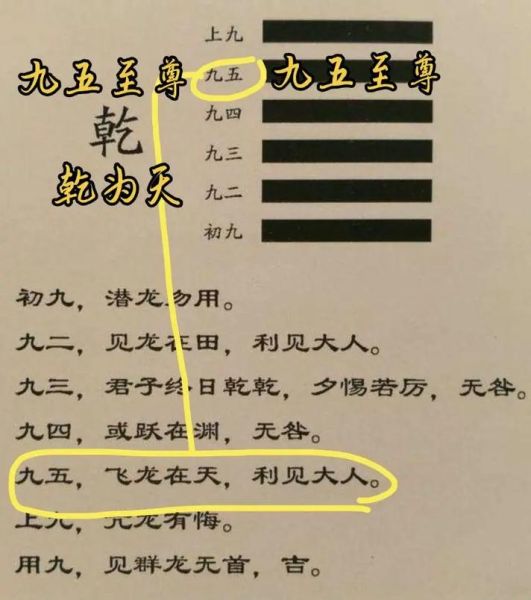 上九
九五至尊 九五 九五至尊
九四
乾
九三
乾为天
九二
初九
初九，潜龙勿用。
九二，见龙在田，利见大人。
九三，君子终日乾乾，夕惕若厉，无咎。
九四，或跃在渊，无咎。
九五，飞龙在天，利见大人。
上九，亢龙有悔。
用九，见群龙无首，吉。